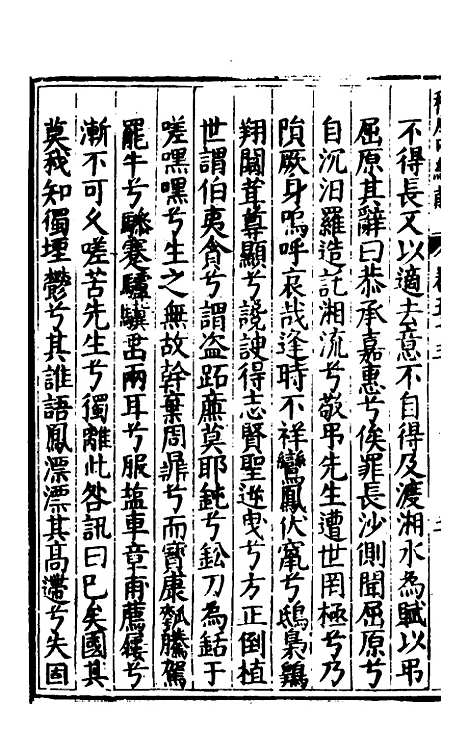 不得長又以適去意不自得及渡湘水為賦以弔
屈原其辭曰恭承嘉惠兮俟罪長沙側聞屈原兮
自沉汨羅造託湘流兮敬弔先生遭世罔極兮乃
隕厥身嗚呼哀哉逢時不祥鸞鳳伏竄兮鴟梟翺
翔闒茸尊顯兮讒諛得志賢聖逆曳兮方正倒植
世謂伯夷貪兮謂盗跖廉莫耶鈍兮鉛刀為銛于
嗟嘿嘿兮生之無故幹棄周鼎兮而寳康瓠騰駕
罷牛兮驂蹇驢驥垂兩耳兮服塩車章甫薦屨兮
漸不可久嗟苦先生兮獨離此咎訊曰已矣國其
莫我知獨堙鬱兮其誰語鳳漂漂其高遰兮夫固